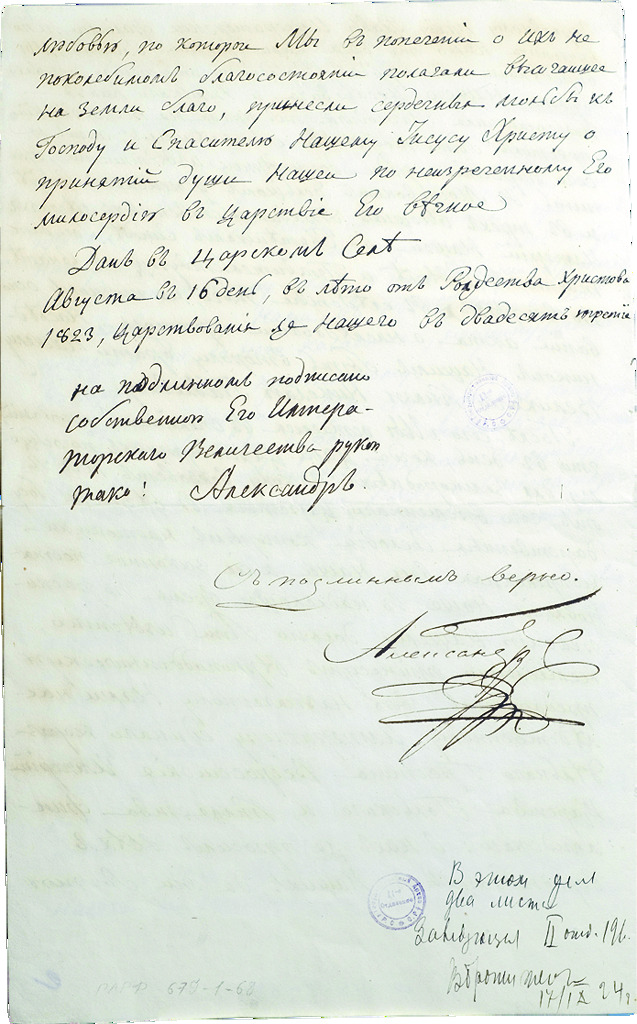 любовью, по которой Мы въ попеченіи о ихъ не
поколебимомъ благосостояніи полагали высочайшее
на земли благо, принести сердечныя мольбы къ
Господу и Спасителю Нашему Іисусу Христу о
принятіи души Нашей по неизреченному Его
милосердію въ Царствіе Его вѣчное
Данъ въ Царскомъ Селѣ
Августа въ 16 день, въ лѣто отъ Рождества Христова
1823, Царствованія же Нашего въ двадесять третіе
на подлинномъ подписано
собственною Его Импера-
торскаго Величества рукою
тако: Александръ
Съ подлиннымъ верно.
Александръ
В этом деле
два листа
Заведующая II отд.
17/IX 24 г.
673-1-68